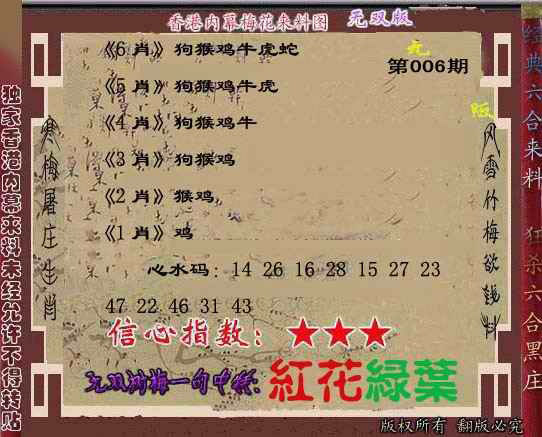 香港内幕梅花来料图 无双版
《6 肖》狗猴鸡牛虎蛇
第006期
《5 肖》狗猴鸡牛虎
《4 肖》狗猴鸡牛
《3 肖》狗猴鸡
《2 肖》猴鸡
《1 肖》鸡
心水码：14 26 16 28 15 27 23
47 22 46 31 43
信心指数：★★★
红花绿葉
版权所有 翻版必究
独家香港内幕来料未经允许不得转贴
寒梅屠庄生肖
风雪竹梅欲钱料
经典六合来料 狂杀六合黑庄